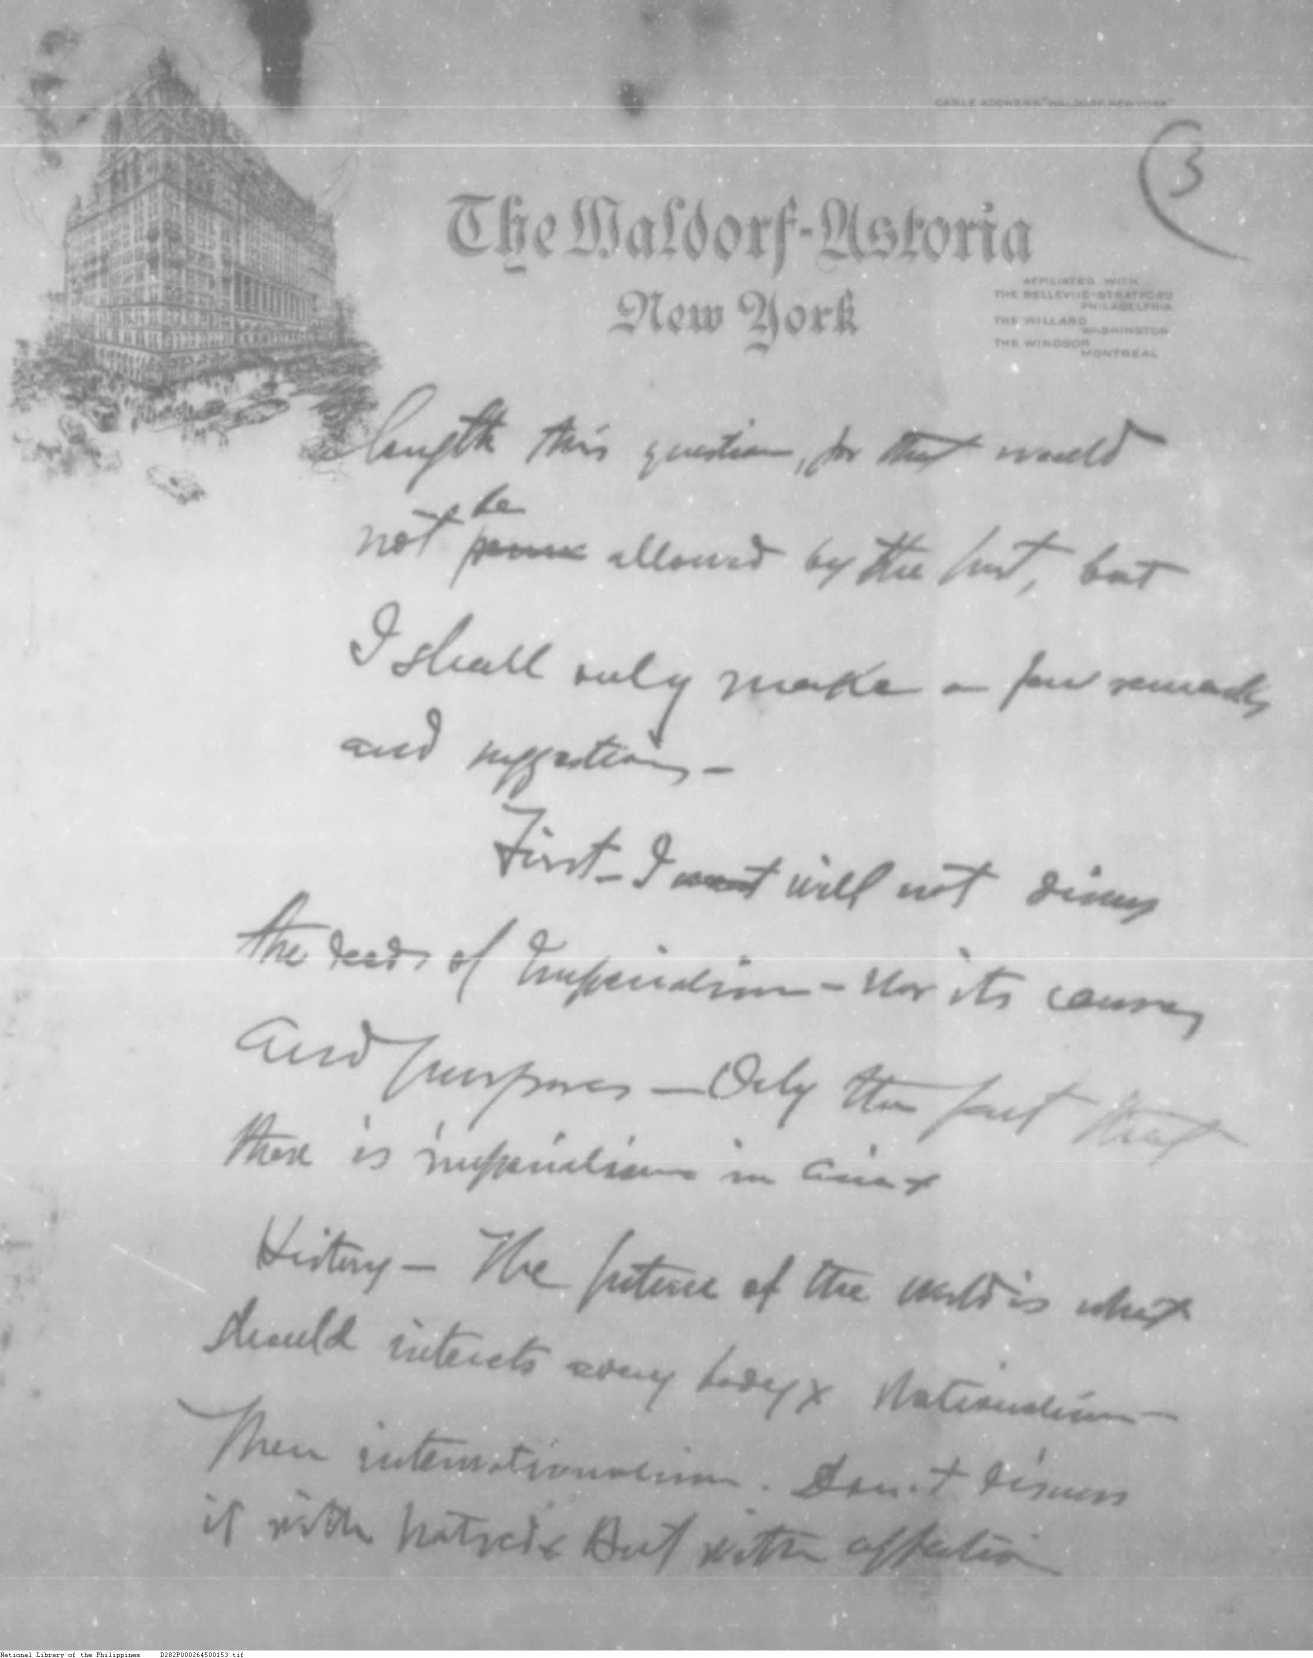 CABLE ADDRESS "WALDORF, NEW YORK"
3
The Waldorf-Astoria
New York
AFFILIATED WITH
THE BELLEVUE-STRATFORD
PHILADELPHIA
THE WILLARD
WASHINGTON
THE WINDSOR
MONTREAL
length this question, for that would
be
not allowed by the host, but
I shall only make a few remarks
and suggestions -
First - I want will not discuss
the deeds of Imperialism - Nor its causes
and purposes - Only the fact that
there is imperialism in Asia x
History - The future of the world is what
should interests every body x Nationalism -
Then internationalism. Don't discuss
it with hatred x But with affection
National Library of the Philippines D282P000264500153.tif